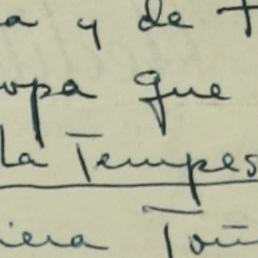 a y de t
opa que
la Tempes
iera Toñ